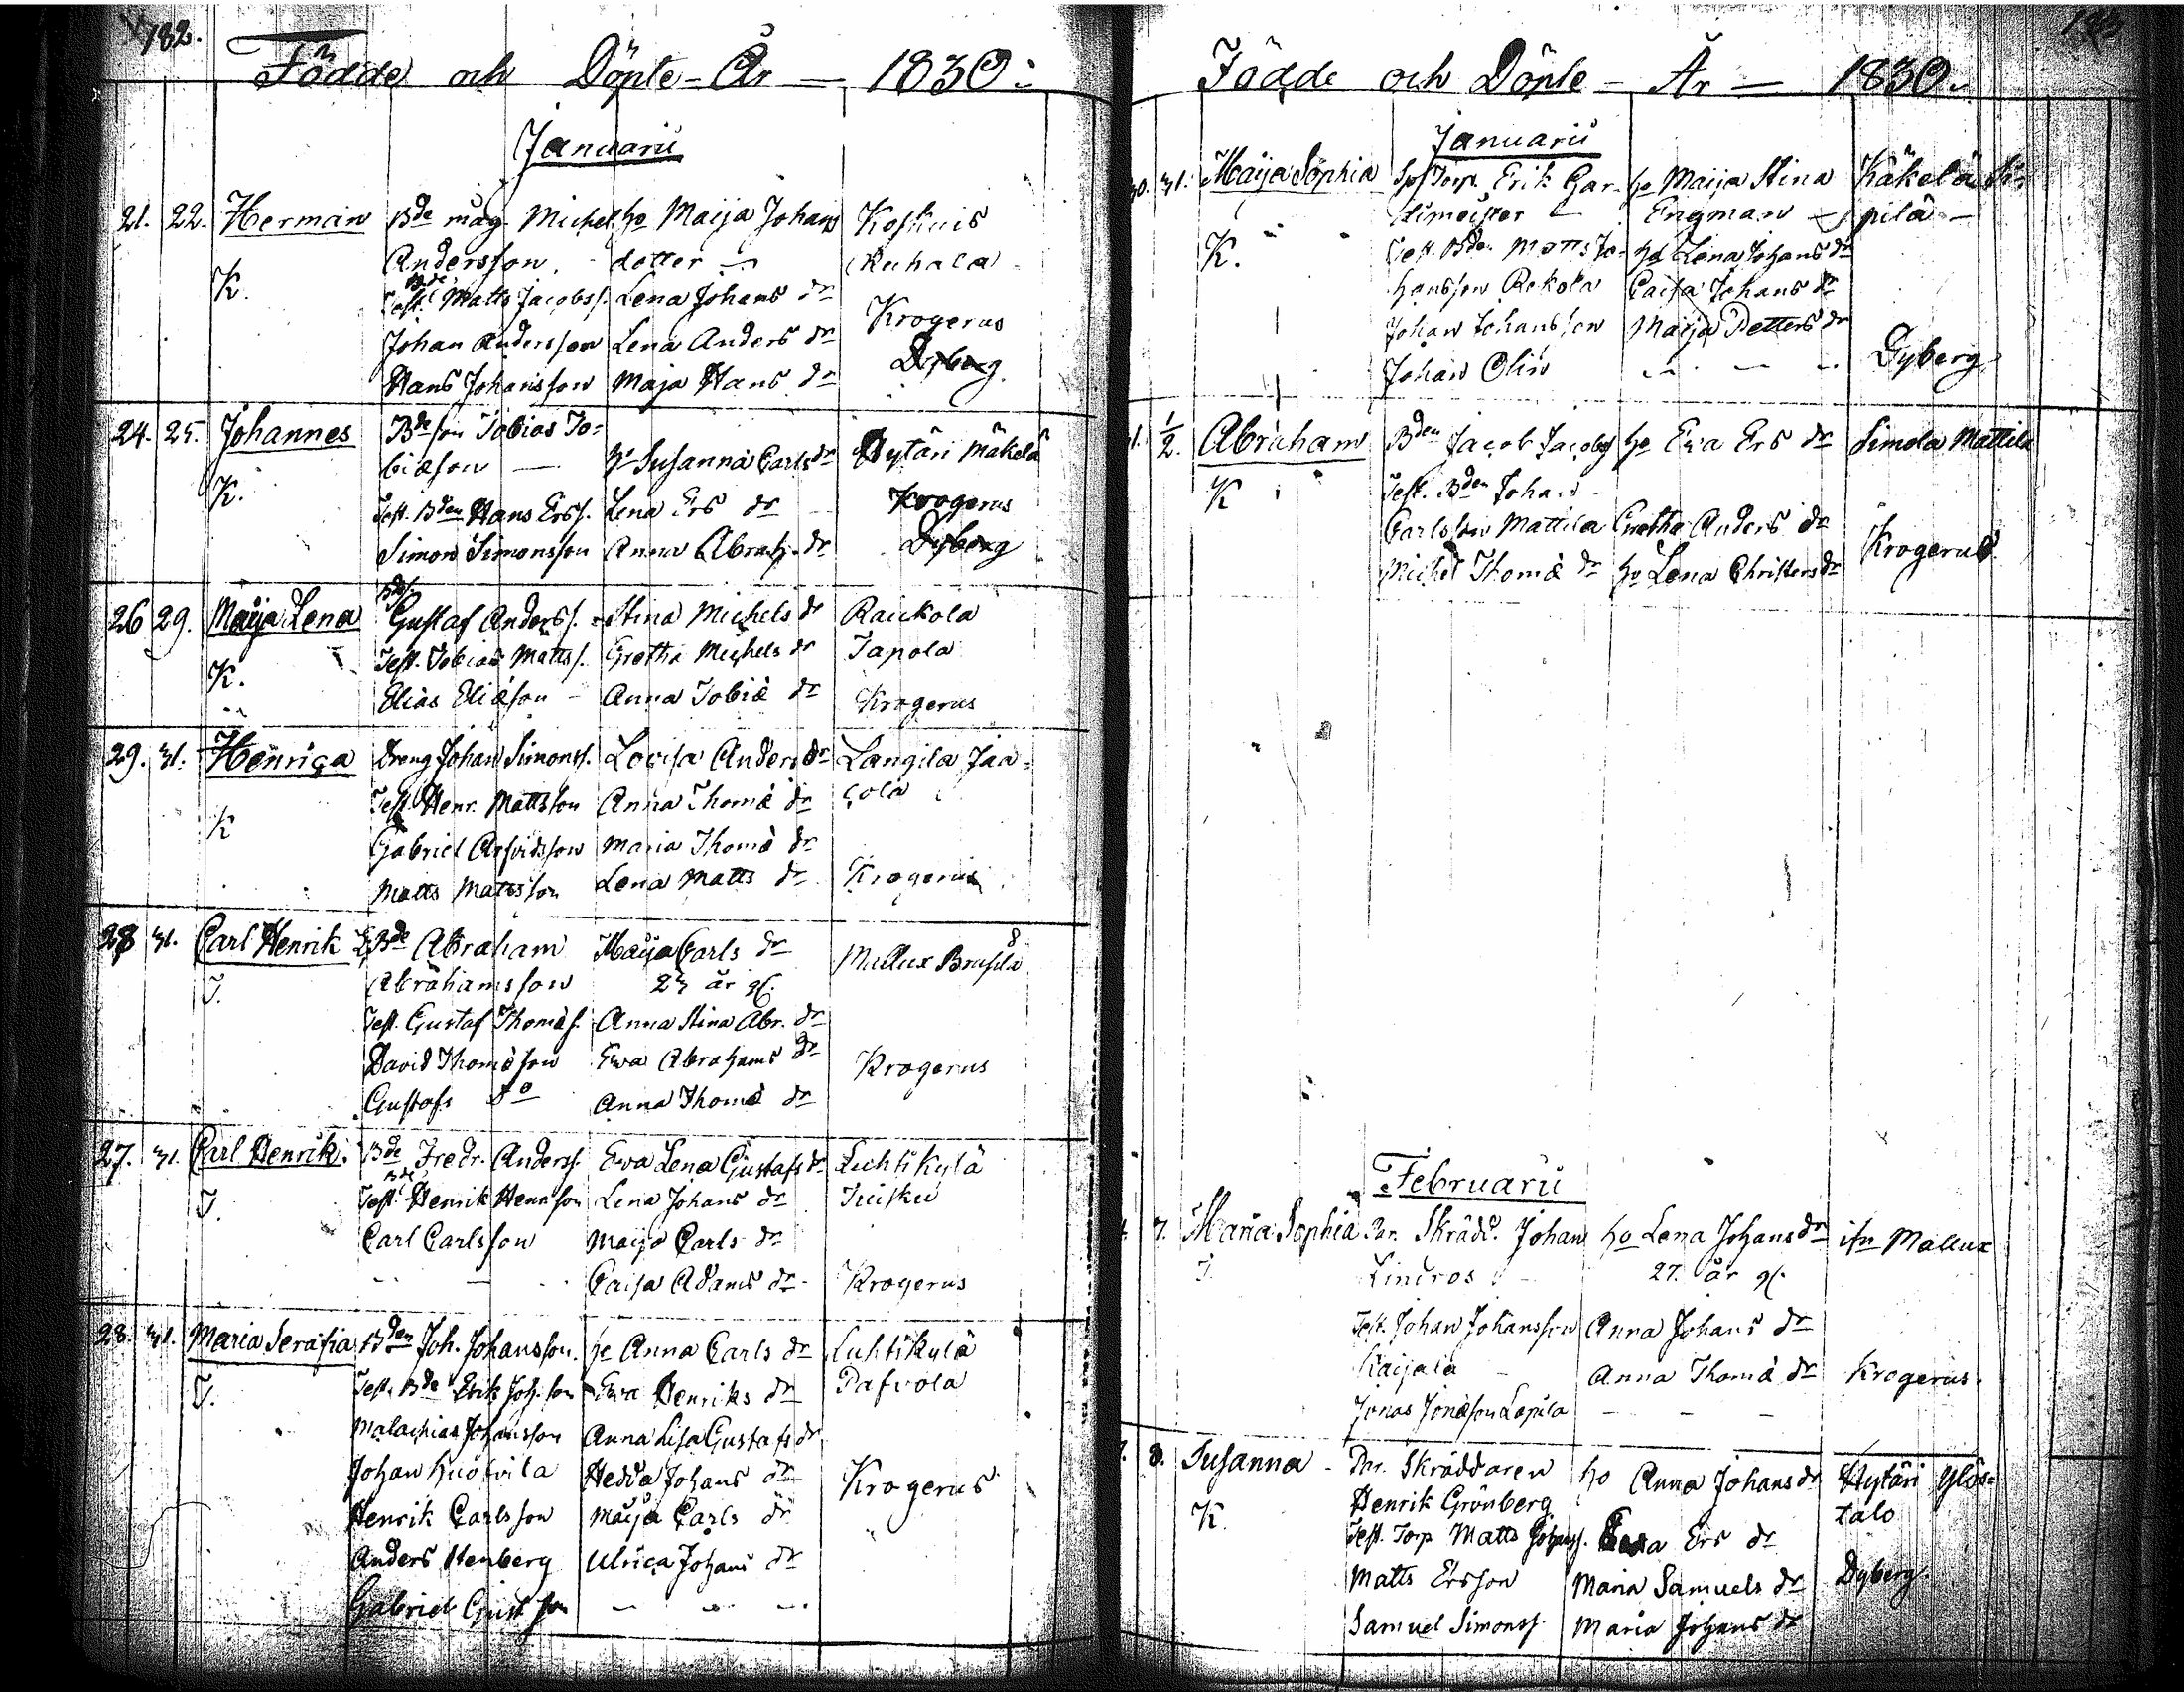 182.
Födde och Döpte - År — 1830.
Januarii
21. 22. Herman Bde mag. Michel ho Maija Johans Koskuis
Andersson. dotter (Kuhala)
K. Bde
Test. Matts Jacobss. Lena Johans dr
Johan Andersson Lena Anders dr Krogerus
Hans Johansson Maja Hans dr Dyberg
24. 25. Johannes Bde son Tobias To-
biæson — ho Susanna Carls dr Hytäri Mäkelä
K.
Test. Bden Hans Erss. Lena Ers dr Krogerus
Simon Simonsson Anna Abrah. dr Dyberg
26 29. Maija Lena Gustaf Anderss. Stina Michels dr Raickola
Test. Tobias Mattss. Gretha Michels dr Tapola
K.
Elias Eliæson - Anna Tobiæ dr Krogerus
29. 31. Henrica Dreng Johan Simonss. Lovisa Anders dr Langila Jaa-
Test. Henr. Mattsson Anna Thomæ dr cola
K
Gabriel Arfvidsson Maria Thomæ dr
Matts Mattsson Lena Matts dr Krogerus
28 31. Carl Henrik Bde Abraham Maija Carls dr Mallux
Abrahamsson 23 år gl.
T.
Test. Gustaf Thomæs. Anna Stina Abr. dr
David Thomæson Ewa Abrahams dr Krogerus
Gustafs do Anna Thomæ dr
27. 31. Carl Henrik. Bde Fredr. Anderss. Ewa Lena Gustafs dr Luhtikylä
Bde
T. Test. Henrik Henrsson Lena Johans dr Tuisku
Carl Carlsson Maija Carls dr
— — Caisa Adams dr Krogerus
28. 31. Maria Serafia Bden Joh. Johansson. ho Anna Carls dr Luhtikylä
T. Test. Bde Erik Joh. son Ewa Henriks dr Pafvola
Malachias Johansson Anna Lisa Gustafs dr
Johan Hedda Johans dr Krogerus
Henrik Carlsson Maija Carls dr
Anders Stenberg Ulrica Johans dr
Gabriel Gust. son — — —
183
Födde och Döpte - År — 1830.
Januarii
30. 31. Maija Sophia Torp. Erik Gar- ho Maija Stina Käkelä
dtmeister — Engman — pilä —
K. Test. Bde. Matts Jo- ho Lena Johans dr
hansson Rekola Caisa Johans dr
Johan Johansson Maija Petters dr
Johan Olin — — — Dyberg
31. 1/2. Abraham Bden Jacob Jacobss ho Ewa Ers dr Simola Mattila
K Test. Bden Johan
Carlsson Mattila Gretha Anders dr
Michel Thomæ dr ho Lena Christers dr Krogerus
Februarii
7. Maria Sophia Skrädd. Johan ho Lena Johans dr ifrn Mallux
T. Lindros 27. år gl.
Test. Johan Johansson Anna Johans dr
Kaijala — Anna Thomæ dr Krogerus.
Jonas Jonæson Lapila — — —
8. Susanna - Skräddaren ho Anna Johans dr Hytäri Ylös-
Henrik Grönberg talo
K. Test. Torp Matts Johanss. Ers dr
Matts Ersson Maria Samuels dr Dyberg.
Samuel Simonss. Maria Johans dr